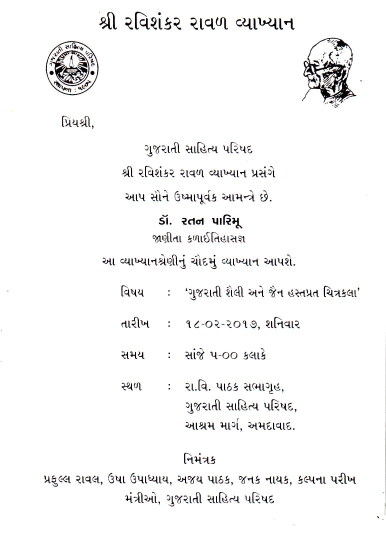 શ્રી રવિશંકર રાવળ વ્યાખ્યાન
ગુજરાતી સાહિત્ય પરિષદ
સ્થાપના : ૧૯૦૫
પ્રિયશ્રી,
ગુજરાતી સાહિત્ય પરિષદ
શ્રી રવિશંકર રાવળ વ્યાખ્યાન પ્રસંગે
આપ સૌને ઉષ્માપૂર્વક આમન્ત્રે છે.
ડૉ. રતન પારિમૂ
જાણીતા કળાઈતિહાસજ્ઞ
આ વ્યાખ્યાનશ્રેણીનું ચૌદમું વ્યાખ્યાન આપશે.
વિષય : ‘ગુજરાતી શૈલી અને જૈન હસ્તપ્રત ચિત્રકલા’
તારીખ : ૧૮-૦૨-૨૦૧૭, શનિવાર
સમય : સાંજે ૫-૦૦ કલાકે
સ્થળ : રા.વિ. પાઠક સભાગૃહ,
ગુજરાતી સાહિત્ય પરિષદ,
આશ્રમ માર્ગ, અમદાવાદ.
નિમંત્રક
પ્રફુલ્લ રાવલ, ઉષા ઉપાધ્યાય, અજય પાઠક, જનક નાયક, કલ્પના પરીખ
મંત્રીઓ, ગુજરાતી સાહિત્ય પરિષદ